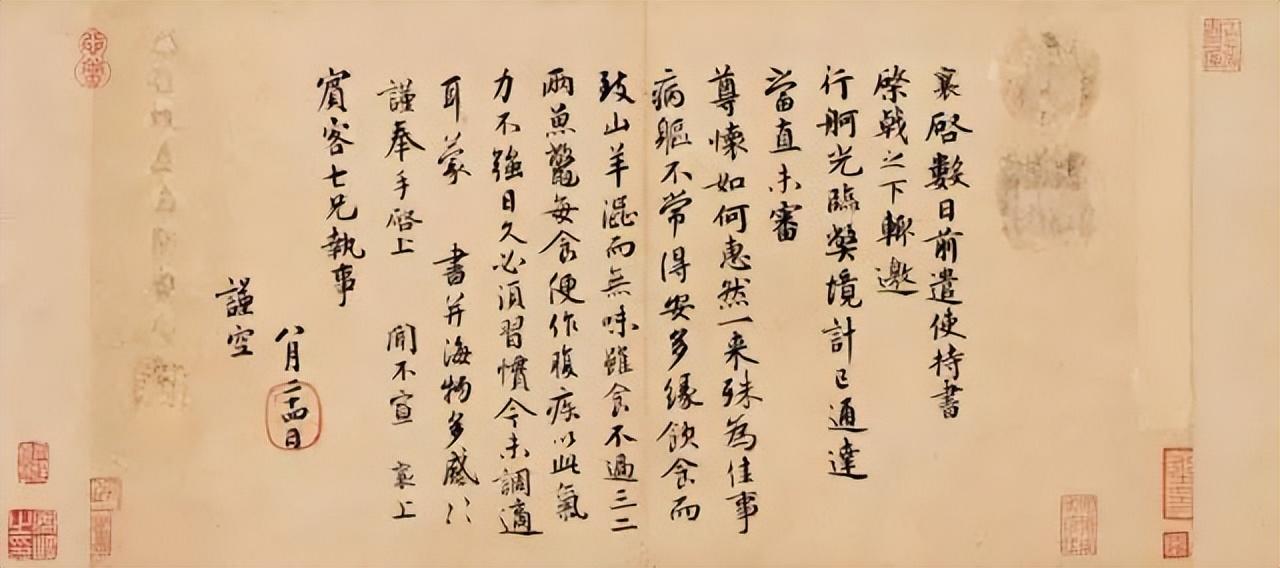 襄啓數日前遣使持書
棨戟之下輙邀
行舸光臨獘境計已通達
當直未審
尊懷如何惠然一来殊為佳事
病軀不常得安多緣飲食而
致山羊澀而無味雖食不過三二
兩魚鼈每食便作腹疾以此氣
力不強日久必須習慣今未調適
耳蒙 書并海物多感〻
謹奉手啓上 聞不宣 襄上
賓客七兄執事
八月二十四日
謹空